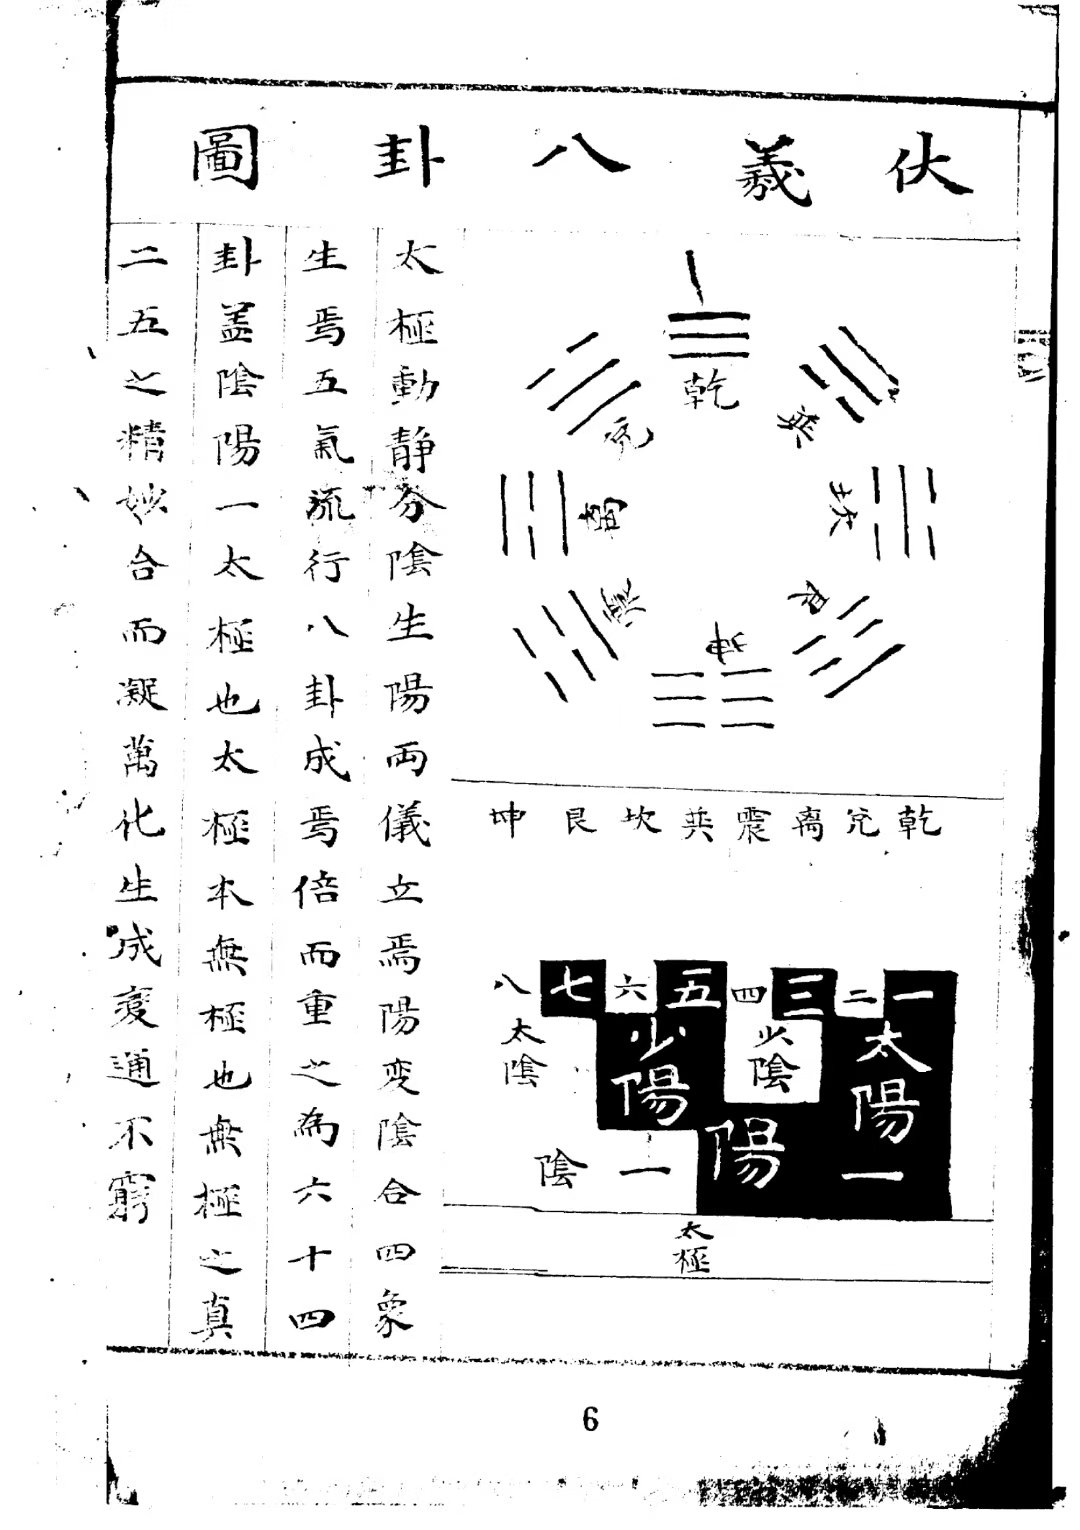 伏羲八卦圖
乾
兌
離
震
巽
坎
艮
坤
乾兌离震巽坎艮坤
一二三四五六七八
太陽
少陰
少陽
太陰
陽一
陰一
太極
太極動靜分陰生陽両儀立焉陽变陰合四象
生焉五氣流行八卦成焉倍而重之為六十四
卦盖陰陽一太極也太極本無極也無極之真
二五之精妙合而凝萬化生成変通不窮
6